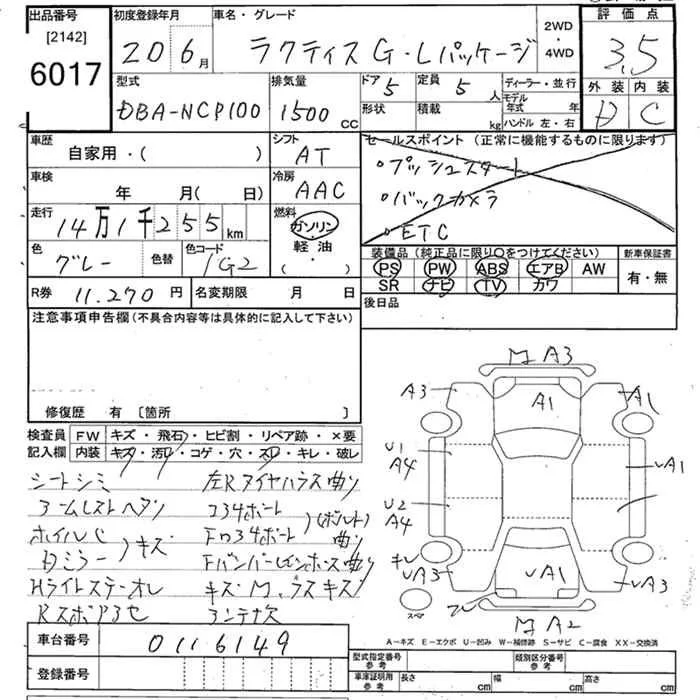 出品番号
[2142]
6017
初度登録年月
20 6月
車名・グレード
ラクティス G・Lパッケージ
2WD
・
4WD
評価点
3.5
外装 内装
D C
型式
DBA-NCP100
排気量
1500 cc
ドア 5
形状
定員 5 人
積載 kg
ディーラー・並行
モデル年式 年
ハンドル 左・右
車歴
自家用・( )
シフト
AT
セールスポイント (正常に機能するものに限ります)
・プッシュスタート
・バックカメラ
・ETC
車検
年 月( 日)
冷房
AAC
走行
14万1千255km
燃料
ガソリン
・
軽油
・
色
グレー
色替
色コード
1G2
装備品 (純正品に限り○をつけてください)
PS PW ABS エアB AW
SR ナビ TV カワ
新車保証書
有・無
R券 11.270 円
名変期限 月 日
後日品
注意事項申告欄 (不具合内容等は具体的に記入して下さい)
修復歴 有 [箇所 ]
検査員記入欄
FW キズ・飛石・ヒビ割・リペア跡・×要
内装 キズ・汚レ・コゲ・穴・スレ・キレ・破レ
シートシミ
アームレストヘタリ
ホイルC
日ミラー
キズ
Hライトステーオレ
Rスポアるセ
左Rタイヤハウス曲り
コ34ボート
Fロ34ボート
(ボルト)曲り
Fバンパーレインホース曲り
キズ・M、ラスキズ
アンテナ欠
M A3
A3
A1
A1
U1
A4
U2
A4
UA1
キレ
UA3
UA1
UA3
スレ
M A2
スペア
A-キズ E-エクボ U-凹み W-補修跡 S-サビ C-腐食 XX-交換済
車台番号
0116149
登録番号
型式指定番号
参考
類別区分番号
参考
車庫証明用
参考
長さ cm
幅 cm
高さ cm